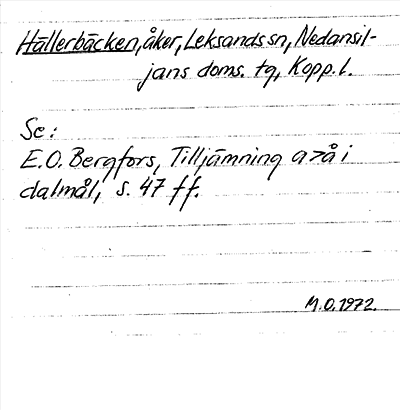 Hällerbäcken, åker, Leksands sn, Nedansil-
jans doms. tg, Kopp. l.
Se:
E.O. Bergfors, Tilljämning a>å i
dalmål, s. 47 ff.
M.O. 1972.